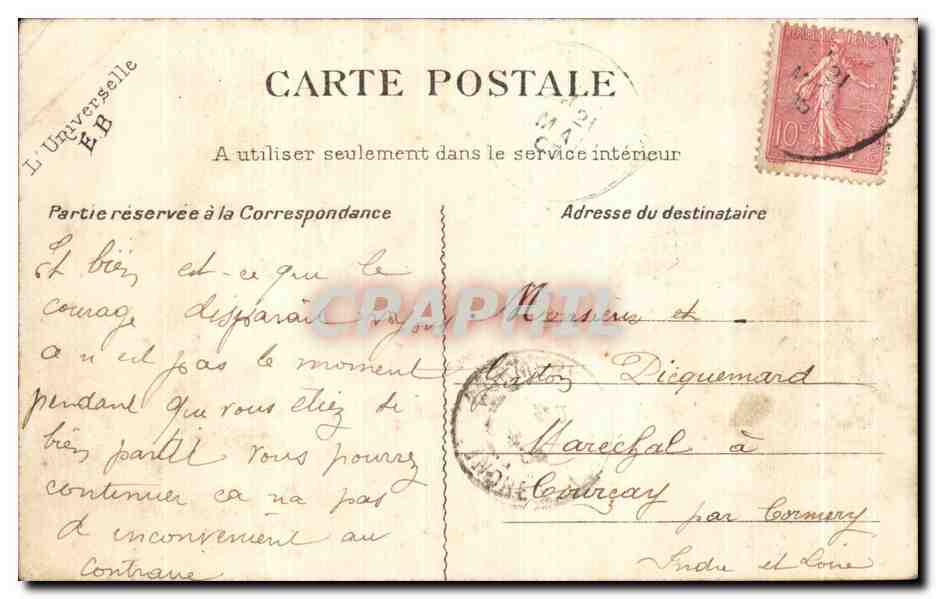 L'Universelle
E.B
CARTE POSTALE
A utiliser seulement dans le service intérieur
Partie réservée à la Correspondance
Adresse du destinataire
21
MAI
21
10c
Et bien est-ce que le
courage disparait
ça n est pas le moment
pendant que vous etiez si
bien parti vous pourrez
continuer ca na pas
d inconvenient au
contraire
CRAPHIL
Monsieur et
Gaston Dicquemard
Maréchal à
Courçay
par Cormery
Indre et Loire